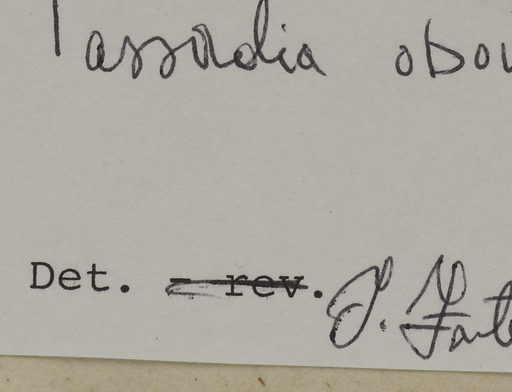 Tassadia obov
Det. - rev. J. Font